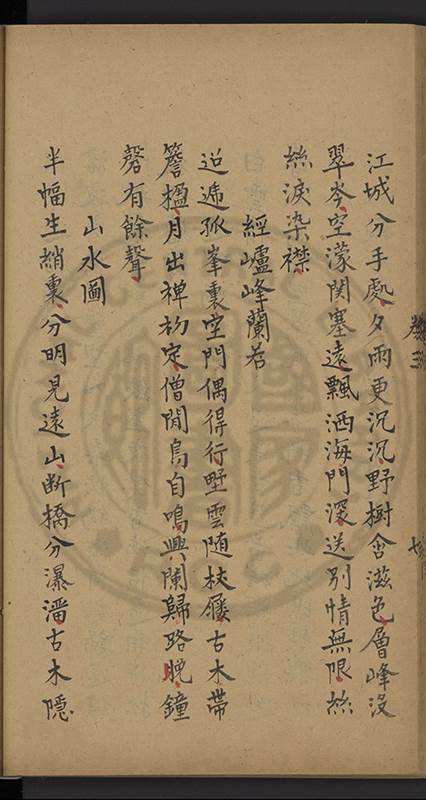 江城分手處夕雨更沉沉野樹含滋色層峰沒
翠岑空濛関塞遠飄洒海門深送別情無限絲
絲淚染襟
經嶇峰蘭若
迢遞孤峯裏空門偶得行野雲随杖屨古木帶
簷楹月出禅初定僧閒鳥自鳴興闌歸路晚鐘
磬有餘聲
山水圖
半幅生綃裏分明見遠山断橋分瀑潘古木隱